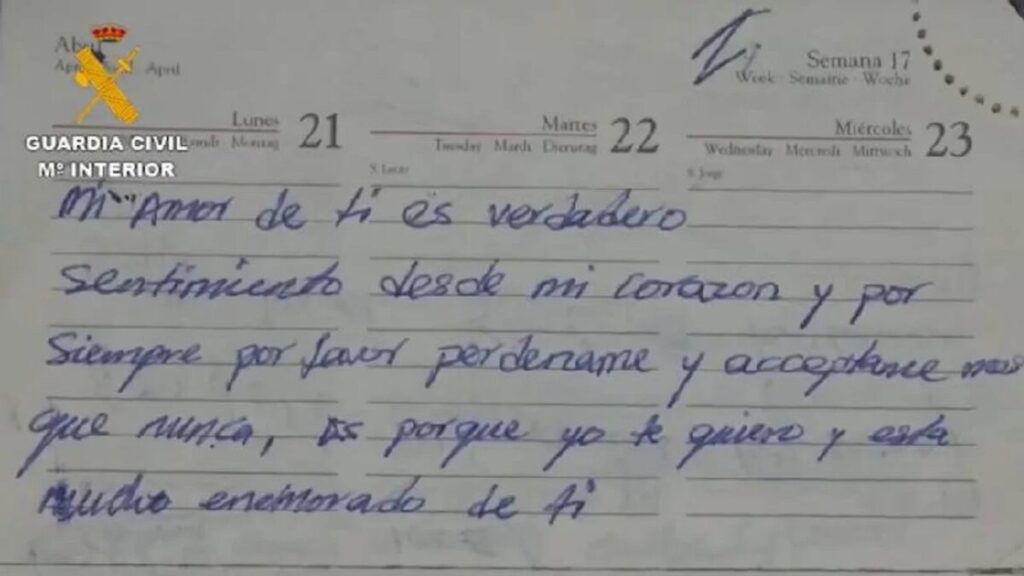 Abril
April
Semana 17
Week Semaine Woche
Lunes 21
Montag
Martes 22
Tuesday Mardi Dienstag
Miércoles 23
Wednesday Mercredi Mittwoch
S. Jorge
GUARDIA CIVIL
Mº INTERIOR
Mi Amor de ti es verdadero
sentimiento desde mi corazon y por
Siempre por favor perdename y acceptame mas
que nunca, es porque yo te quiero y esta
mucho enemorado de ti